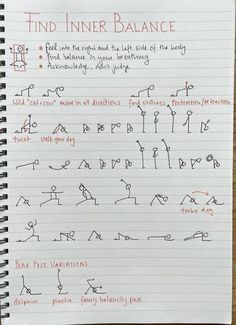 FIND INNER BALANCE
feel into the right and the left side of the body
find balance in your breathing
Acknowledge, don't judge
Wild "cat + cow" move in all directions
find stillness
Protraction/retraction
twist
walk your dog
turbo dog
PEAK POSE VARIATIONS
dolphin
pincha
fancy balancing pose